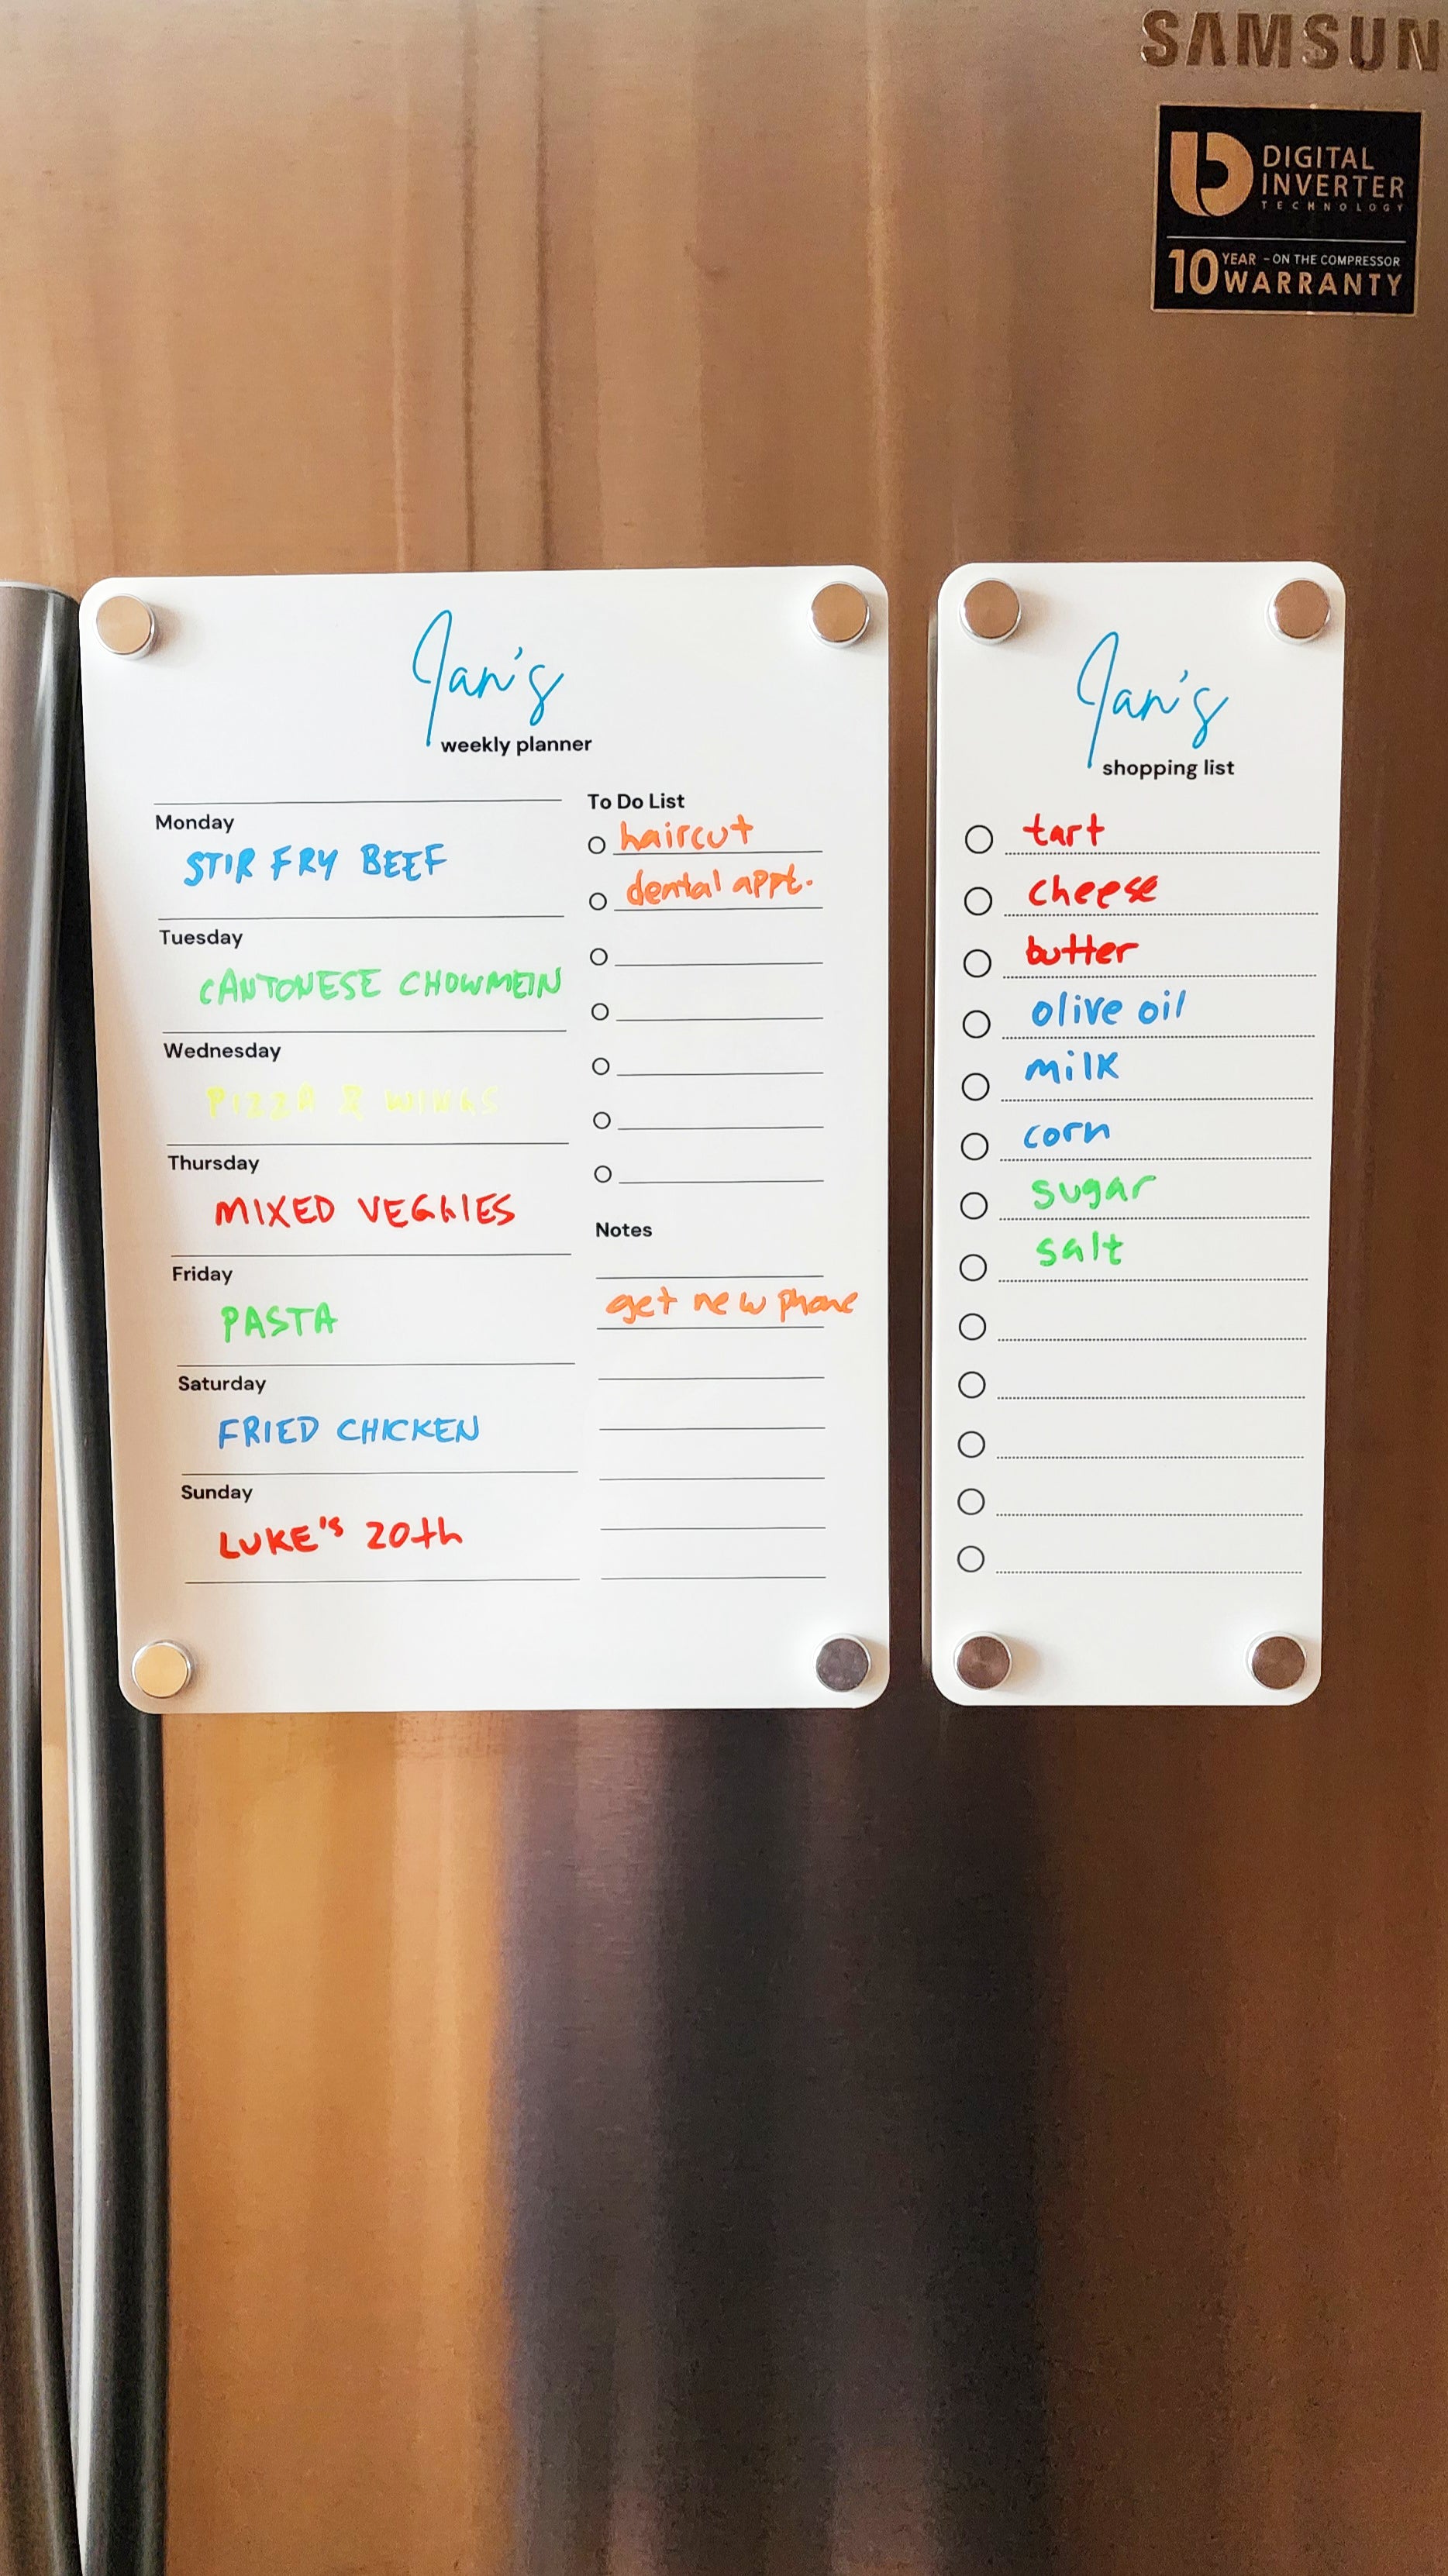 SAMSUN
DIGITAL
INVERTER
TECHNOLOGY
10 YEAR - ON THE COMPRESSOR
WARRANTY
Jan's
weekly planner
Monday
STIR FRY BEEF
Tuesday
CANTONESE CHOWMEIN
Wednesday
PIZZA & WINGS
Thursday
MIXED VEGGIES
Friday
PASTA
Saturday
FRIED CHICKEN
Sunday
LUKE'S 20th
To Do List
haircut
dental appt.
Notes
get new phone
Jan's
shopping list
tart
cheese
butter
olive oil
milk
corn
sugar
salt